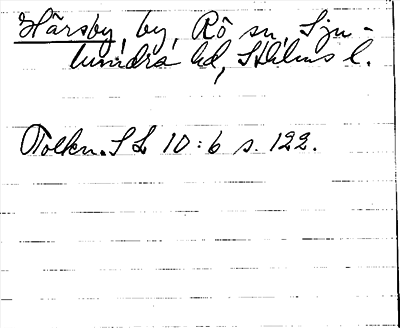 Hårsby, by, Rö sn, Sju-
hundra hd, Sthlms l.
Tolkn. SL 10:6 s. 122.